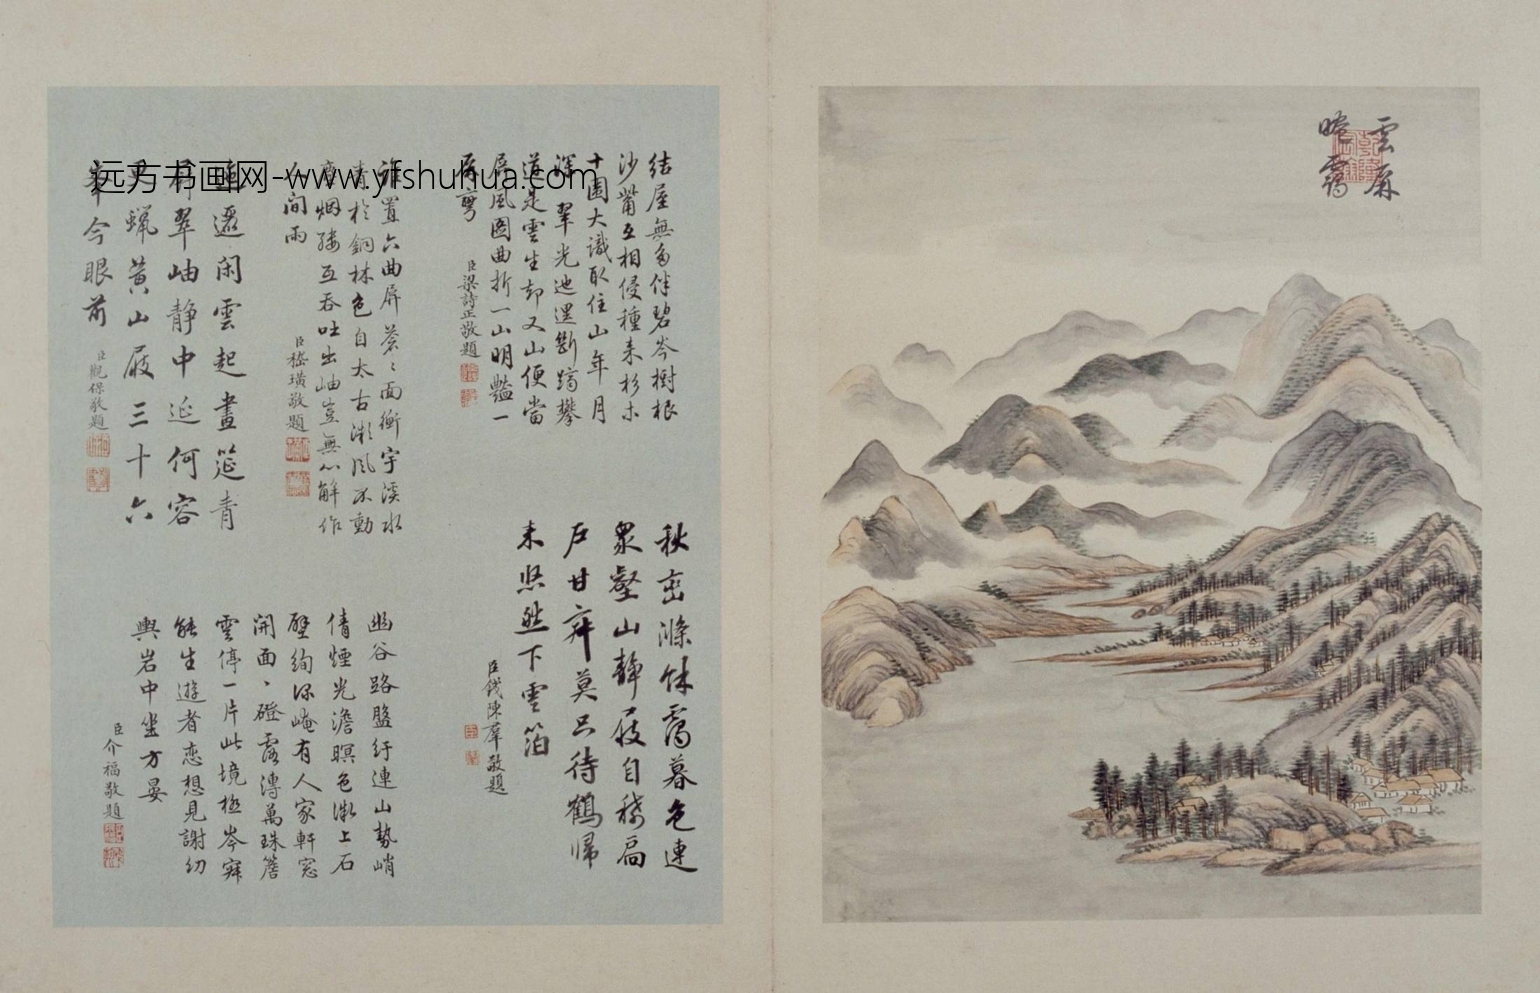 雲屏
靄
結屋無多伴碧岑樹根
沙觜互相侵種来杉木
十圍大識取住山年月
深 翠光迆邐斷躋攀
道是雲生却又山便當
屏風圖曲折一山明豔一
屏彎
臣梁詩正敬題
置六曲屏蒼〻面衡宇溪水
青於銅林色自太古漸風不動
烟縷互吞吐出岫豈無心解作
人間雨
臣嵇璜敬題
邐闲雲起畫筵青
為翠岫静中延何容
蠟黄山屐三十六
峯今眼前
臣觀保敬題
秋峦滌靄暮色連
衆壑山静屐自稀扃
戶甘弃莫只待鶴歸
来悠然下雲箔
臣錢陳羣敬題
幽谷路盤紆連山勢峭
倩煙光澹暝色漸上石
壁絢深崦有人家軒窓
開面、磴露溥萬珠簷
雲停一片此境極岑寂
能生遊者恋想見謝幼
輿岩中坐方晏
臣介福敬題
远方书画网-www.yfshuhua.com